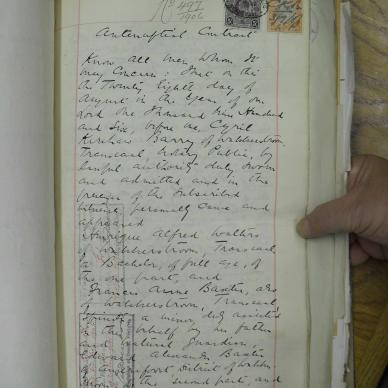 No 497
1906
Antenuptial Contract
Know all men whom it
may Concern: That on this
the Twenty Eighth day of
August in the Year of our
Lord One Thousand Nine Hundred
and Six, before me, Cyril
Kershaw Barry of Wolmaransstad,
Transvaal, Notary Public, by
lawful authority duly sworn
and admitted and in the
presence of the subscribed
witnesses personally came and
appeared
Alfred Walters
of Wolmaransstad, Transvaal,
a Bachelor, of full age, of
the one part, and
Frances Anne Baxter, also
of Wolmaransstad, Transvaal,
Spinster, a minor, duly assisted
in this behalf by her father
and natural Guardian,
Edward Alexander Baxter
of District of
the second part, and